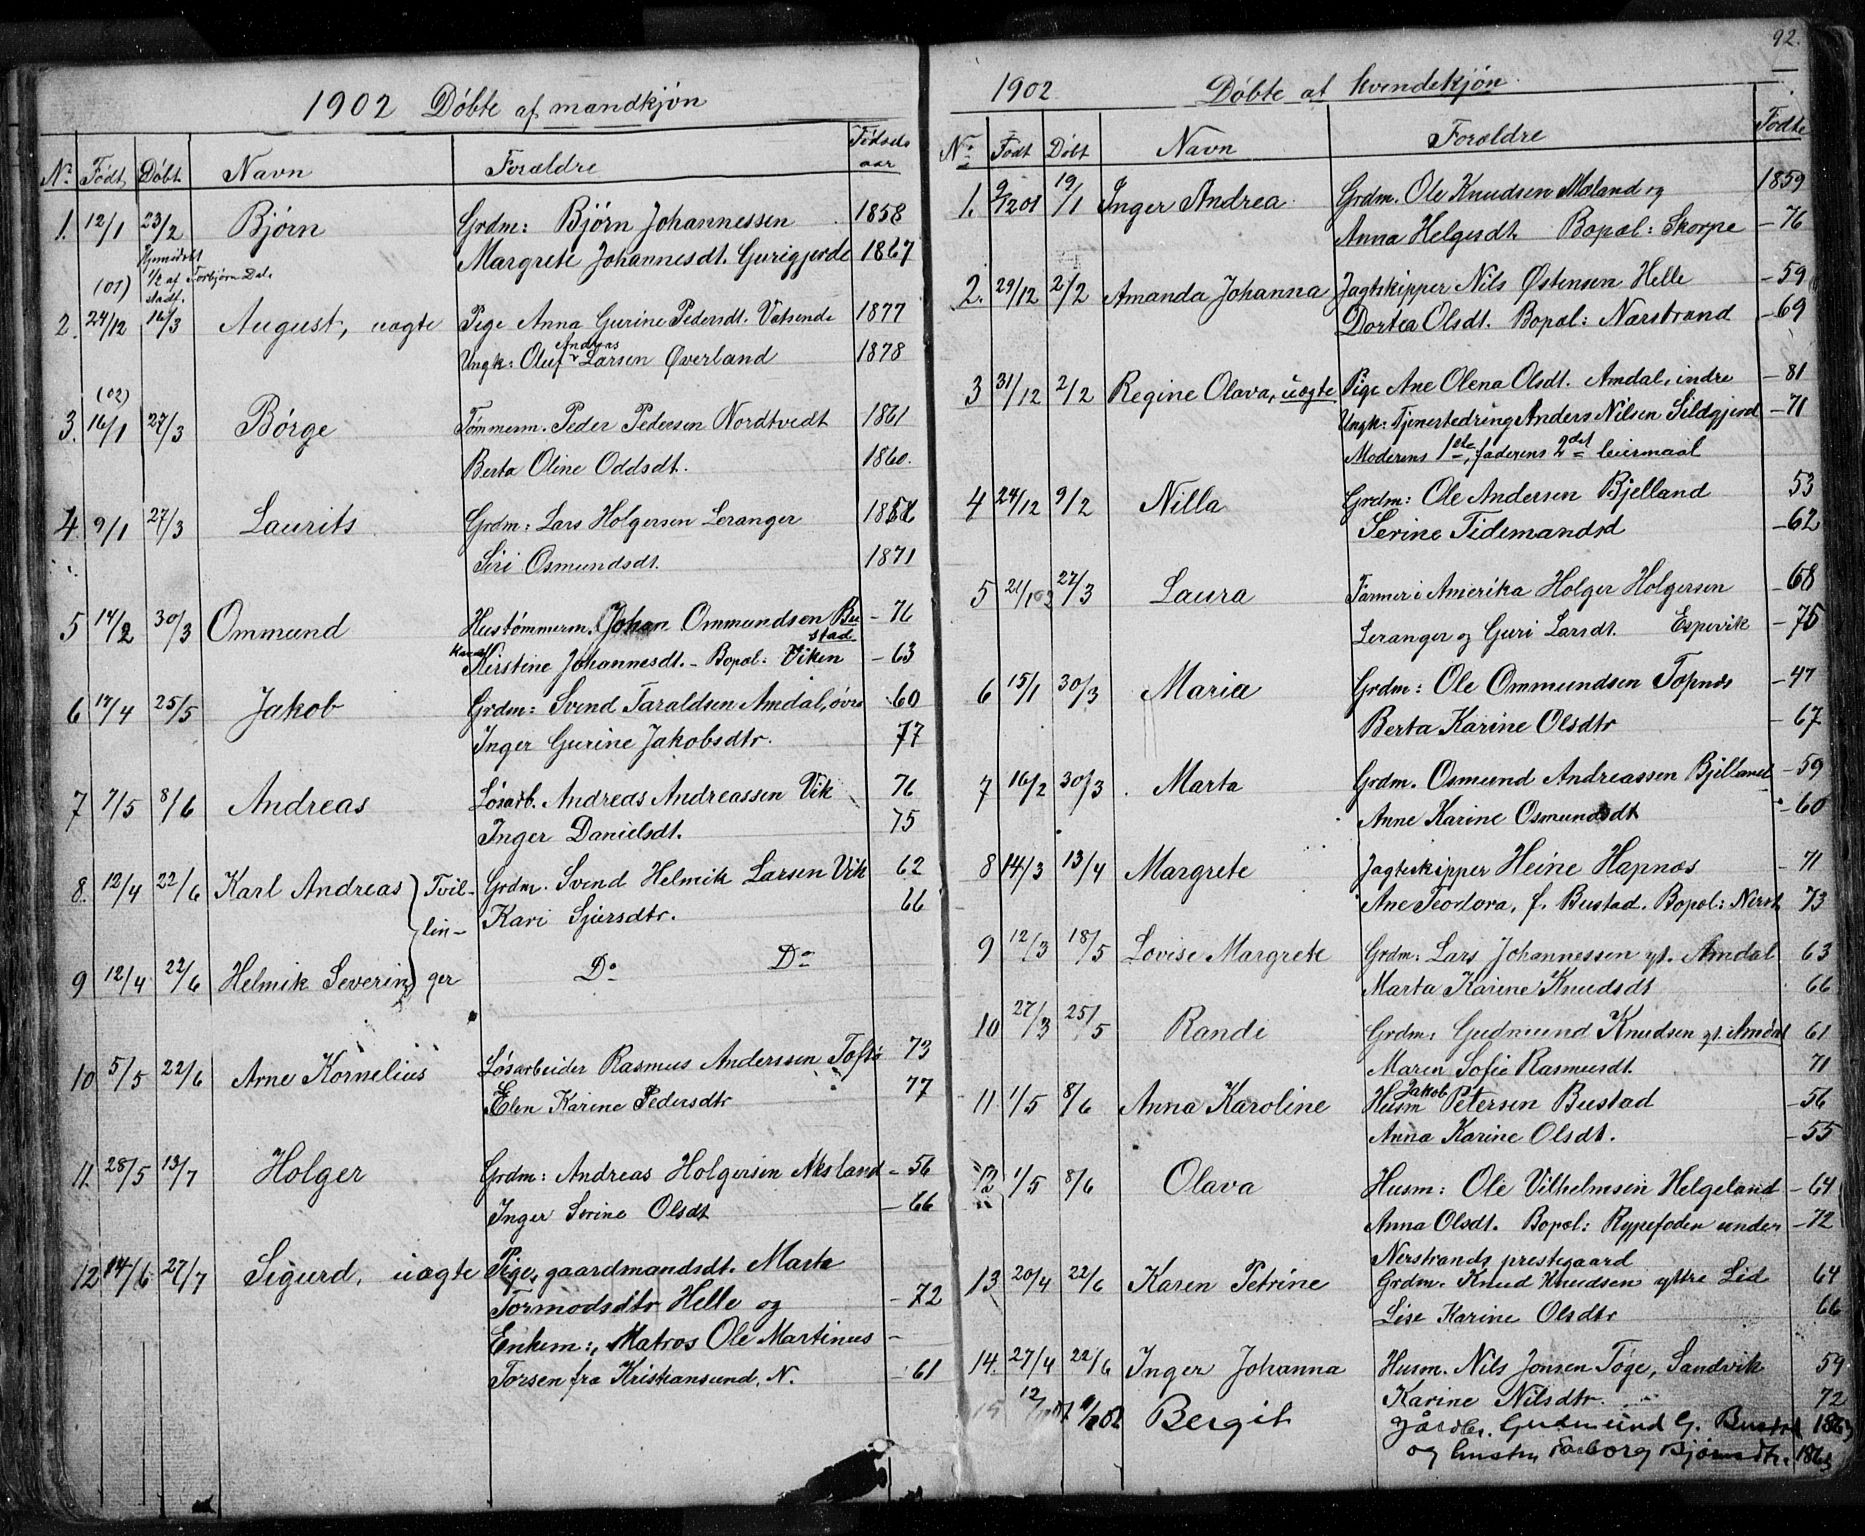 1902 Döbte af mandkjön
Nº Födt Döbt Navn Forældre Födsels aar
1. 12/1 23/2 Bjørn Grdm: Bjørn Johannessen 1858
Hjemmedøbt
Margrete Johannesdt. Gurigjerde 1867
1/2 af Torbjørn Dal.
(01) stadf.
2. 24/12 16/3 August, uægte Pige Anna Gurine Pedersdt. Vatsende 1877
Andreas
Ungk: Oluf Larsen Øverland 1878
(02)
3. 16/1 27/3 Børge Tømmerm. Peder Pedersen Nordtvedt 1861
Berta Oline Oddsdt. 1860.
4. 9/1 27/3 Laurits Grdm: Lars Holgersen Leranger
Siri Osmundsdt. 1871
5 14/2 30/3 Ommund Hustømmerm. Johan Ommundsen Bu - 76
stad
Kirstine Johannesdt. - Bopæl: Viken - 63
6 17/4 25/5 Jakob Grdm: Svend Taraldsen Amdal, øvre 60
Inger Gurine Jakobsdtr. 77
7 7/5 8/6 Andreas Løsarb. Andreas Andreassen Vik 76
Inger Danielsdt. 75
8. 12/4 22/6 Karl Andreas } Tvil- Grdm. Svend Helmik Larsen Vik 62
lin- Kari Sjursdtr. 66
9 12/4 22/6 Helmik Severin } ger Dº Dº
10 5/5 22/6 Arne Kornelius Løsarbeider Rasmus Anderssen Toftø 73
Elen Karine Pedersdtr 77
11. 28/5 13/7 Holger Grdm: Andreas Holgersen Aksland - 56
Inger Serine Olsdt - 66
12 14/6 27/7 Sigurd, uægte Pige, gaardmandsdt. Marta
Tormodsdtr Helle og - 72
Enkem:, Matros Ole Martinus -
Torsen fra Kristiansund. N. 61
92.
1902 Döbte af kvindekjön
Nº Födt Döbt Navn Forældre Födte
1. 9/12 01 19/1 Inger Andrea Grdm. Ole Knudsen Møland og 1859
Anna Helgesdt. Bopæl: Skorpe - 76
2. 29/12 2/2 Amanda Johanna Jagtskipper Nils Østensen Helle - 59
Dortea Olsdt. Bopæl: Narstrand - 69
3 31/12 2/2 Regine Olava, uægte Pige Ane Olena Olsdt. Amdal, indre - 81
Ungk: Tjenestedreng Anders Nilsen Sildgjerd - 71
Moderens 1ste, faderens 2det leiermaal
4 24/12 9/2 Nilla Grdm: Ole Andersen Bjelland 53
Serine Tidemandsd - 62
5 27/3 Laura Farmer i Amerika Holger Holgersen - 68
Leranger og Guri Larsdt. Espevik - 75
6 15/1 30/3 Maria Grdm: Ole Ommundsen Topnæs - 47
Berta Karine Olsdtr - 67
7 16/2 30/3 Marta Grdm. Osmund Andreassen Bjelland - 59
Anne Karine Osmundsdt - 60
8 14/3 13/4 Margrete Jagteskipper Heine Hapnæs - 71
Ane Teodora, f. Bustad. Bopæl: Nerst 73
9 12/3 18/5 Lovise Margrete Grdm: Lars Johannessen yt. Amdal 63
Marta Karine Knudsdt 66
10 27/3 25/5 Randi Grdm: Gudmund Knudsen yt. Amdal 61
Maren Sofie Rasmusdt. 71
Jakob
11 1/5 8/6 Anna Karoline Husm Petersen Bustad - 56
Anna Karine Olsdt. - 55
12 1/5 8/6 Olava Husm: Ole Vilhelmsen Helgeland - 64
Anna Olsdt. Bopæl: Rypefoden under - 72
Nerstrands prestegaard
13 20/4 22/6 Karen Petrine Grdm. Knud Knudsen yttre Lid 64
Lise Karine Olsdtr 66
14. 27/4 22/6 Inger Johanna Husm. Nils Jonsen Tøge, Sandvik 59
Karine Nilsdtr. 72
15 Bergit Gårdbr. Gudmund G. Bustad
og hustru Torborg Bjørnsdtr.